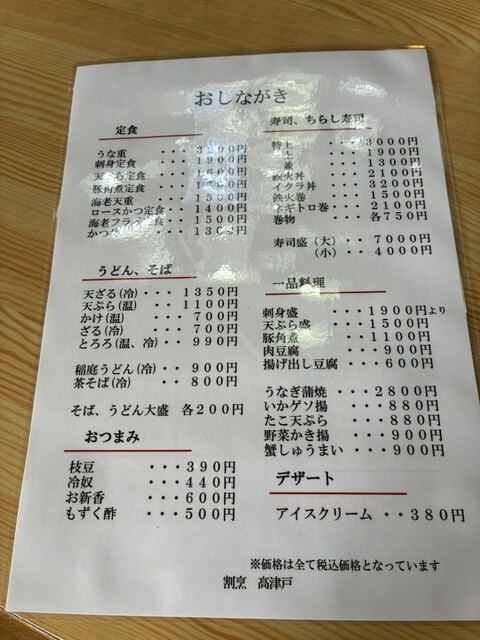 おしながき
定食
うな重 ・・・
刺身定食 ・・・1900円
天ぷら定食 ・・・
豚角煮定食 ・・・
海老天重 ・・・1500円
ロースかつ定食・・・1400円
海老フライ定食・・・1500円
・・・130
うどん、そば
天ざる(冷)・・・1350円
天ぷら(温) ・・・1100円
かけ(温) ・・・700円
ざる(冷) ・・・700円
とろろ(温、冷)・・990円
稲庭うどん(冷)・・900円
茶そば(冷) ・・800円
そば、うどん大盛 各200円
おつまみ
枝豆 ・・・390円
冷奴 ・・・440円
お新香 ・・・600円
もずく酢 ・・・500円
寿司、ちらし寿司
特上 ・・・3000円
上 ・・・1900円
並 ・・・1300円
鉄火丼 ・・・2100円
イクラ丼 ・・・3200円
鉄火巻 ・・・1500円
ネギトロ巻 ・・・2100円
巻物 ・・・各750円
寿司盛(大)・・7000円
(小)・・4000円
一品料理
刺身盛 ・・・1900円より
天ぷら盛 ・・・1500円
豚角煮 ・・・1100円
肉豆腐 ・・・900円
揚げ出し豆腐 ・・600円
うなぎ蒲焼 ・・・2800円
いかゲソ揚 ・・・880円
たこ天ぷら ・・・880円
野菜かき揚 ・・・900円
蟹しゅうまい ・・・900円
デザート
アイスクリーム ・・380円
※価格は全て税込価格となっています
割烹 高津戸